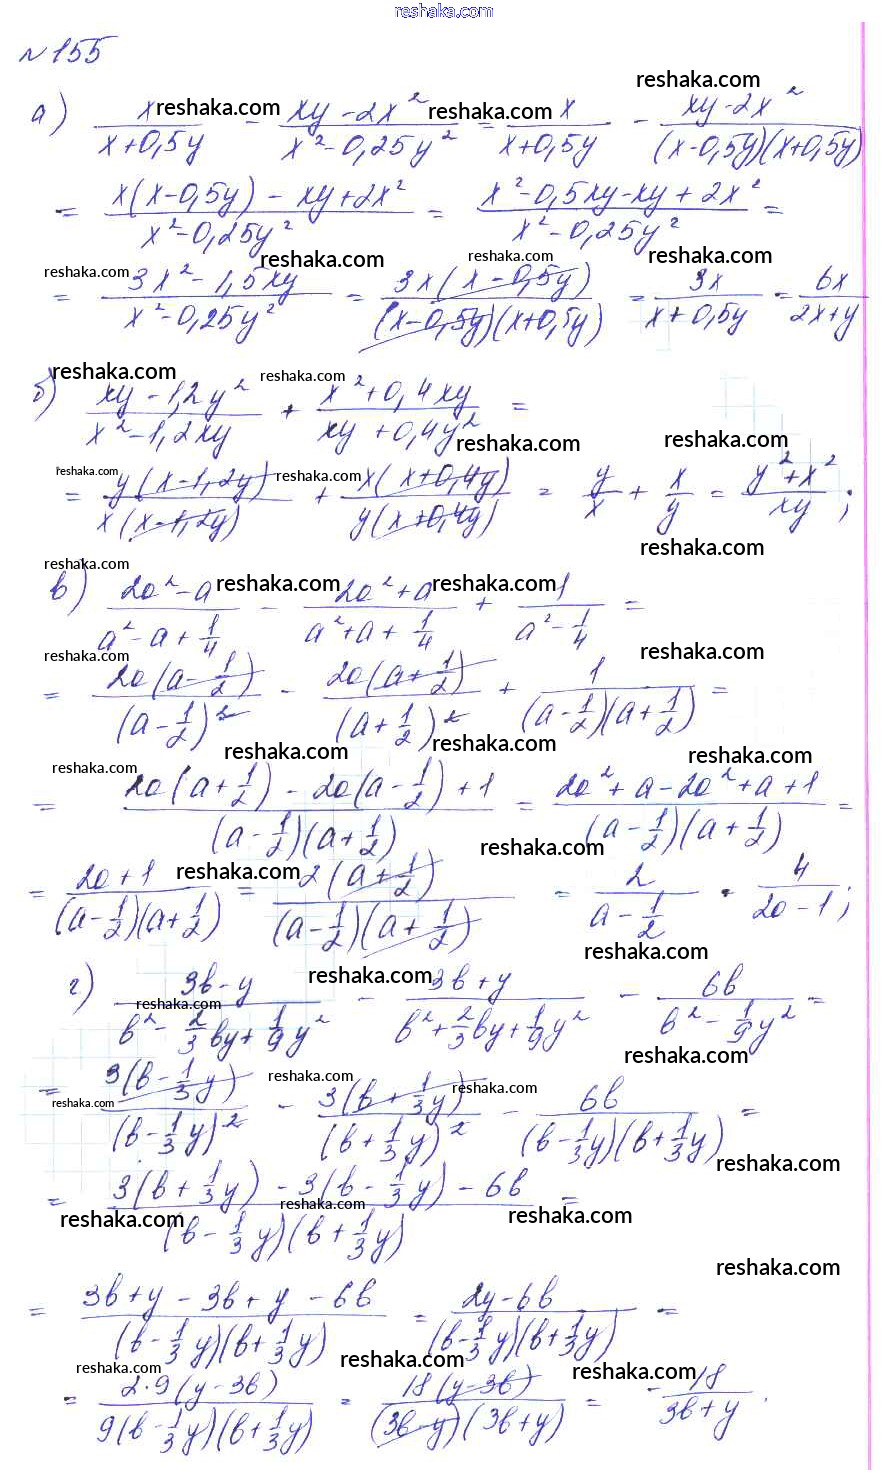 reshaka.com
№155
а) x/(x+0,5y) - (xy-2x²)/(x²-0,25y²) = x/(x+0,5y) - (xy-2x²)/((x-0,5y)(x+0,5y))
= (x(x-0,5y) - xy+2x²)/(x²-0,25y²) = (x²-0,5xy-xy+2x²)/(x²-0,25y²) =
= (3x²-1,5xy)/(x²-0,25y²) = (3x(x-0,5y))/((x-0,5y)(x+0,5y)) = 3x/(x+0,5y) = 6x/(2x+y)
б) (xy-1,2y²)/(x²-1,2xy) + (x²+0,4xy)/(xy+0,4y²) =
= (y(x-1,2y))/(x(x-1,2y)) + (x(x+0,4y))/(y(x+0,4y)) = y/x + x/y = (y²+x²)/(xy);
в) (2a²-a)/(a²-a+1/4) - (2a²+a)/(a²+a+1/4) + 1/(a²-1/4) =
= (2a(a-1/2))/((a-1/2)²) - (2a(a+1/2))/((a+1/2)²) + 1/((a-1/2)(a+1/2)) =
= (2a(a+1/2) - 2a(a-1/2) + 1)/((a-1/2)(a+1/2)) = (2a²+a-2a²+a+1)/((a-1/2)(a+1/2)) =
= (2a+1)/((a-1/2)(a+1/2)) = (2(a+1/2))/((a-1/2)(a+1/2)) = 2/(a-1/2) = 4/(2a-1);
г) (3b-y)/(b²-2/3by+1/9y²) - (3b+y)/(b²+2/3by+1/9y²) - 6b/(b²-1/9y²) =
= (3(b-1/3y))/((b-1/3y)²) - (3(b+1/3y))/((b+1/3y)²) - 6b/((b-1/3y)(b+1/3y)) =
= (3(b+1/3y) - 3(b-1/3y) - 6b)/((b-1/3y)(b+1/3y)) =
= (3b+y-3b+y-6b)/((b-1/3y)(b+1/3y)) = (2y-6b)/((b-1/3y)(b+1/3y)) =
= (2·9(y-3b))/(9(b-1/3y)(b+1/3y)) = (18(y-3b))/((3b-y)(3b+y)) = -18/(3b+y).